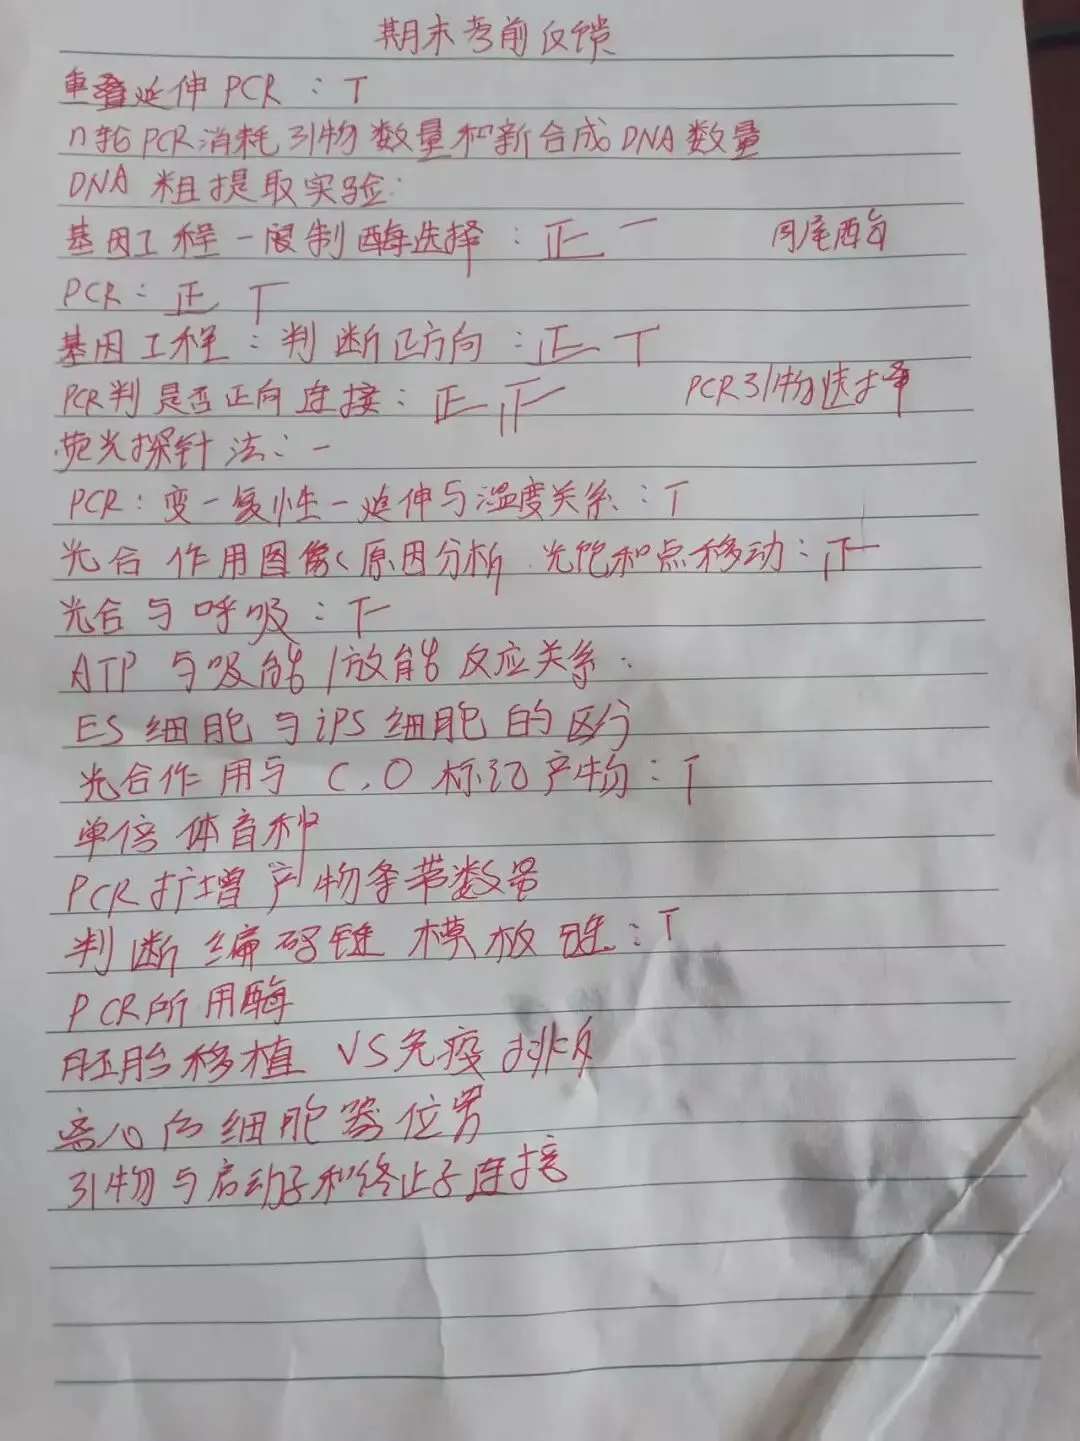 期末考前反馈
重叠延伸PCR：T
n轮PCR消耗引物数量和新合成DNA数量
DNA 粗提取实验：
基因工程－限制酶选择：正一 同尾酶
PCR：正 T
基因工程：判断正方向：正 T
PCR判是否正向连接：正 正 PCR引物选择
荧光探针法：一
PCR：变－复性－延伸与温度关系：T
光合作用图像（原因分析 光饱和点移动：正
光合与呼吸：下
ATP与吸能/放能反应关系：
ES细胞与iPS细胞的区分
光合作用与C,O标记产物：T
单倍体育种
PCR扩增产物条带数量
判断编码链 模板链：T
PCR所用酶
胚胎移植 VS免疫排斥
离心后细胞器位置
引物与启动子和终止子连接